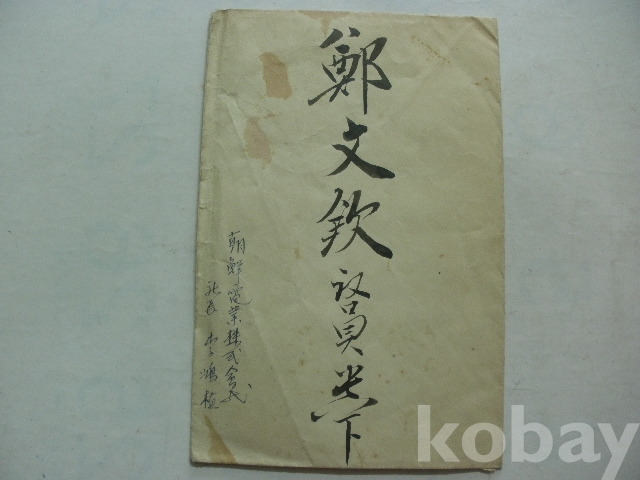 鄭文欽議員貴下
朝鮮電業株式会社
社長 李鴻植
kobay